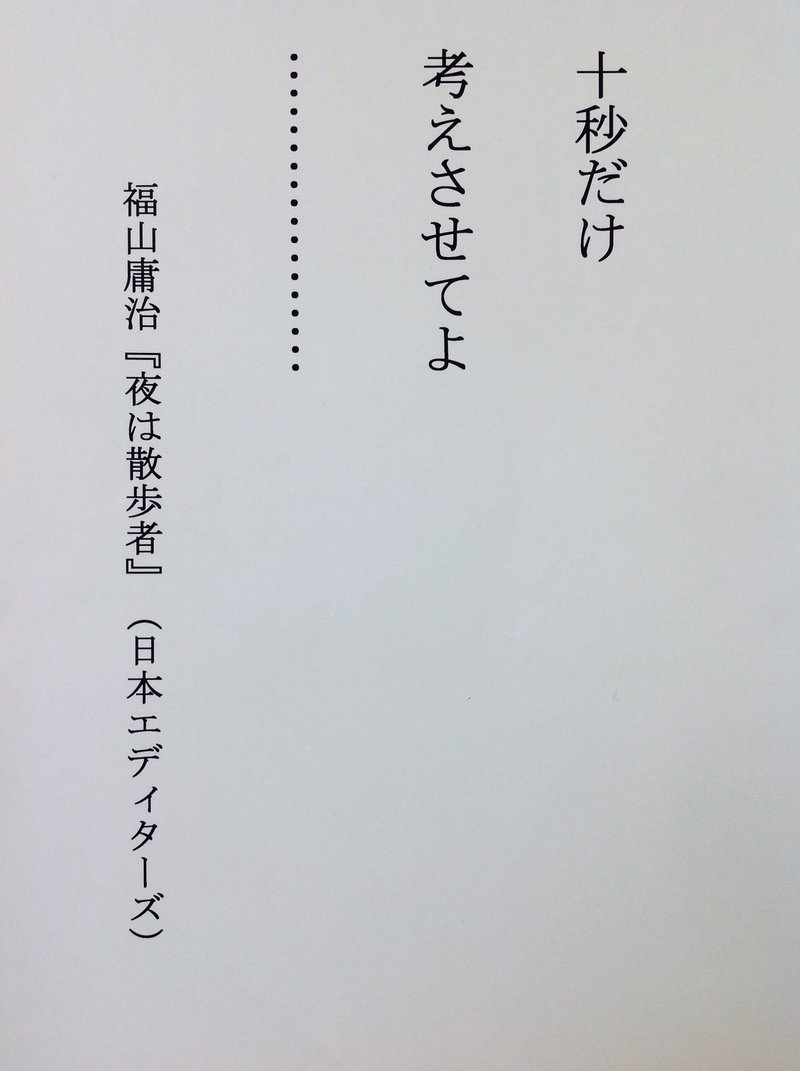 十秒だけ
考えさせてよ
………………
福山庸治『夜は散歩者』（日本エディターズ）